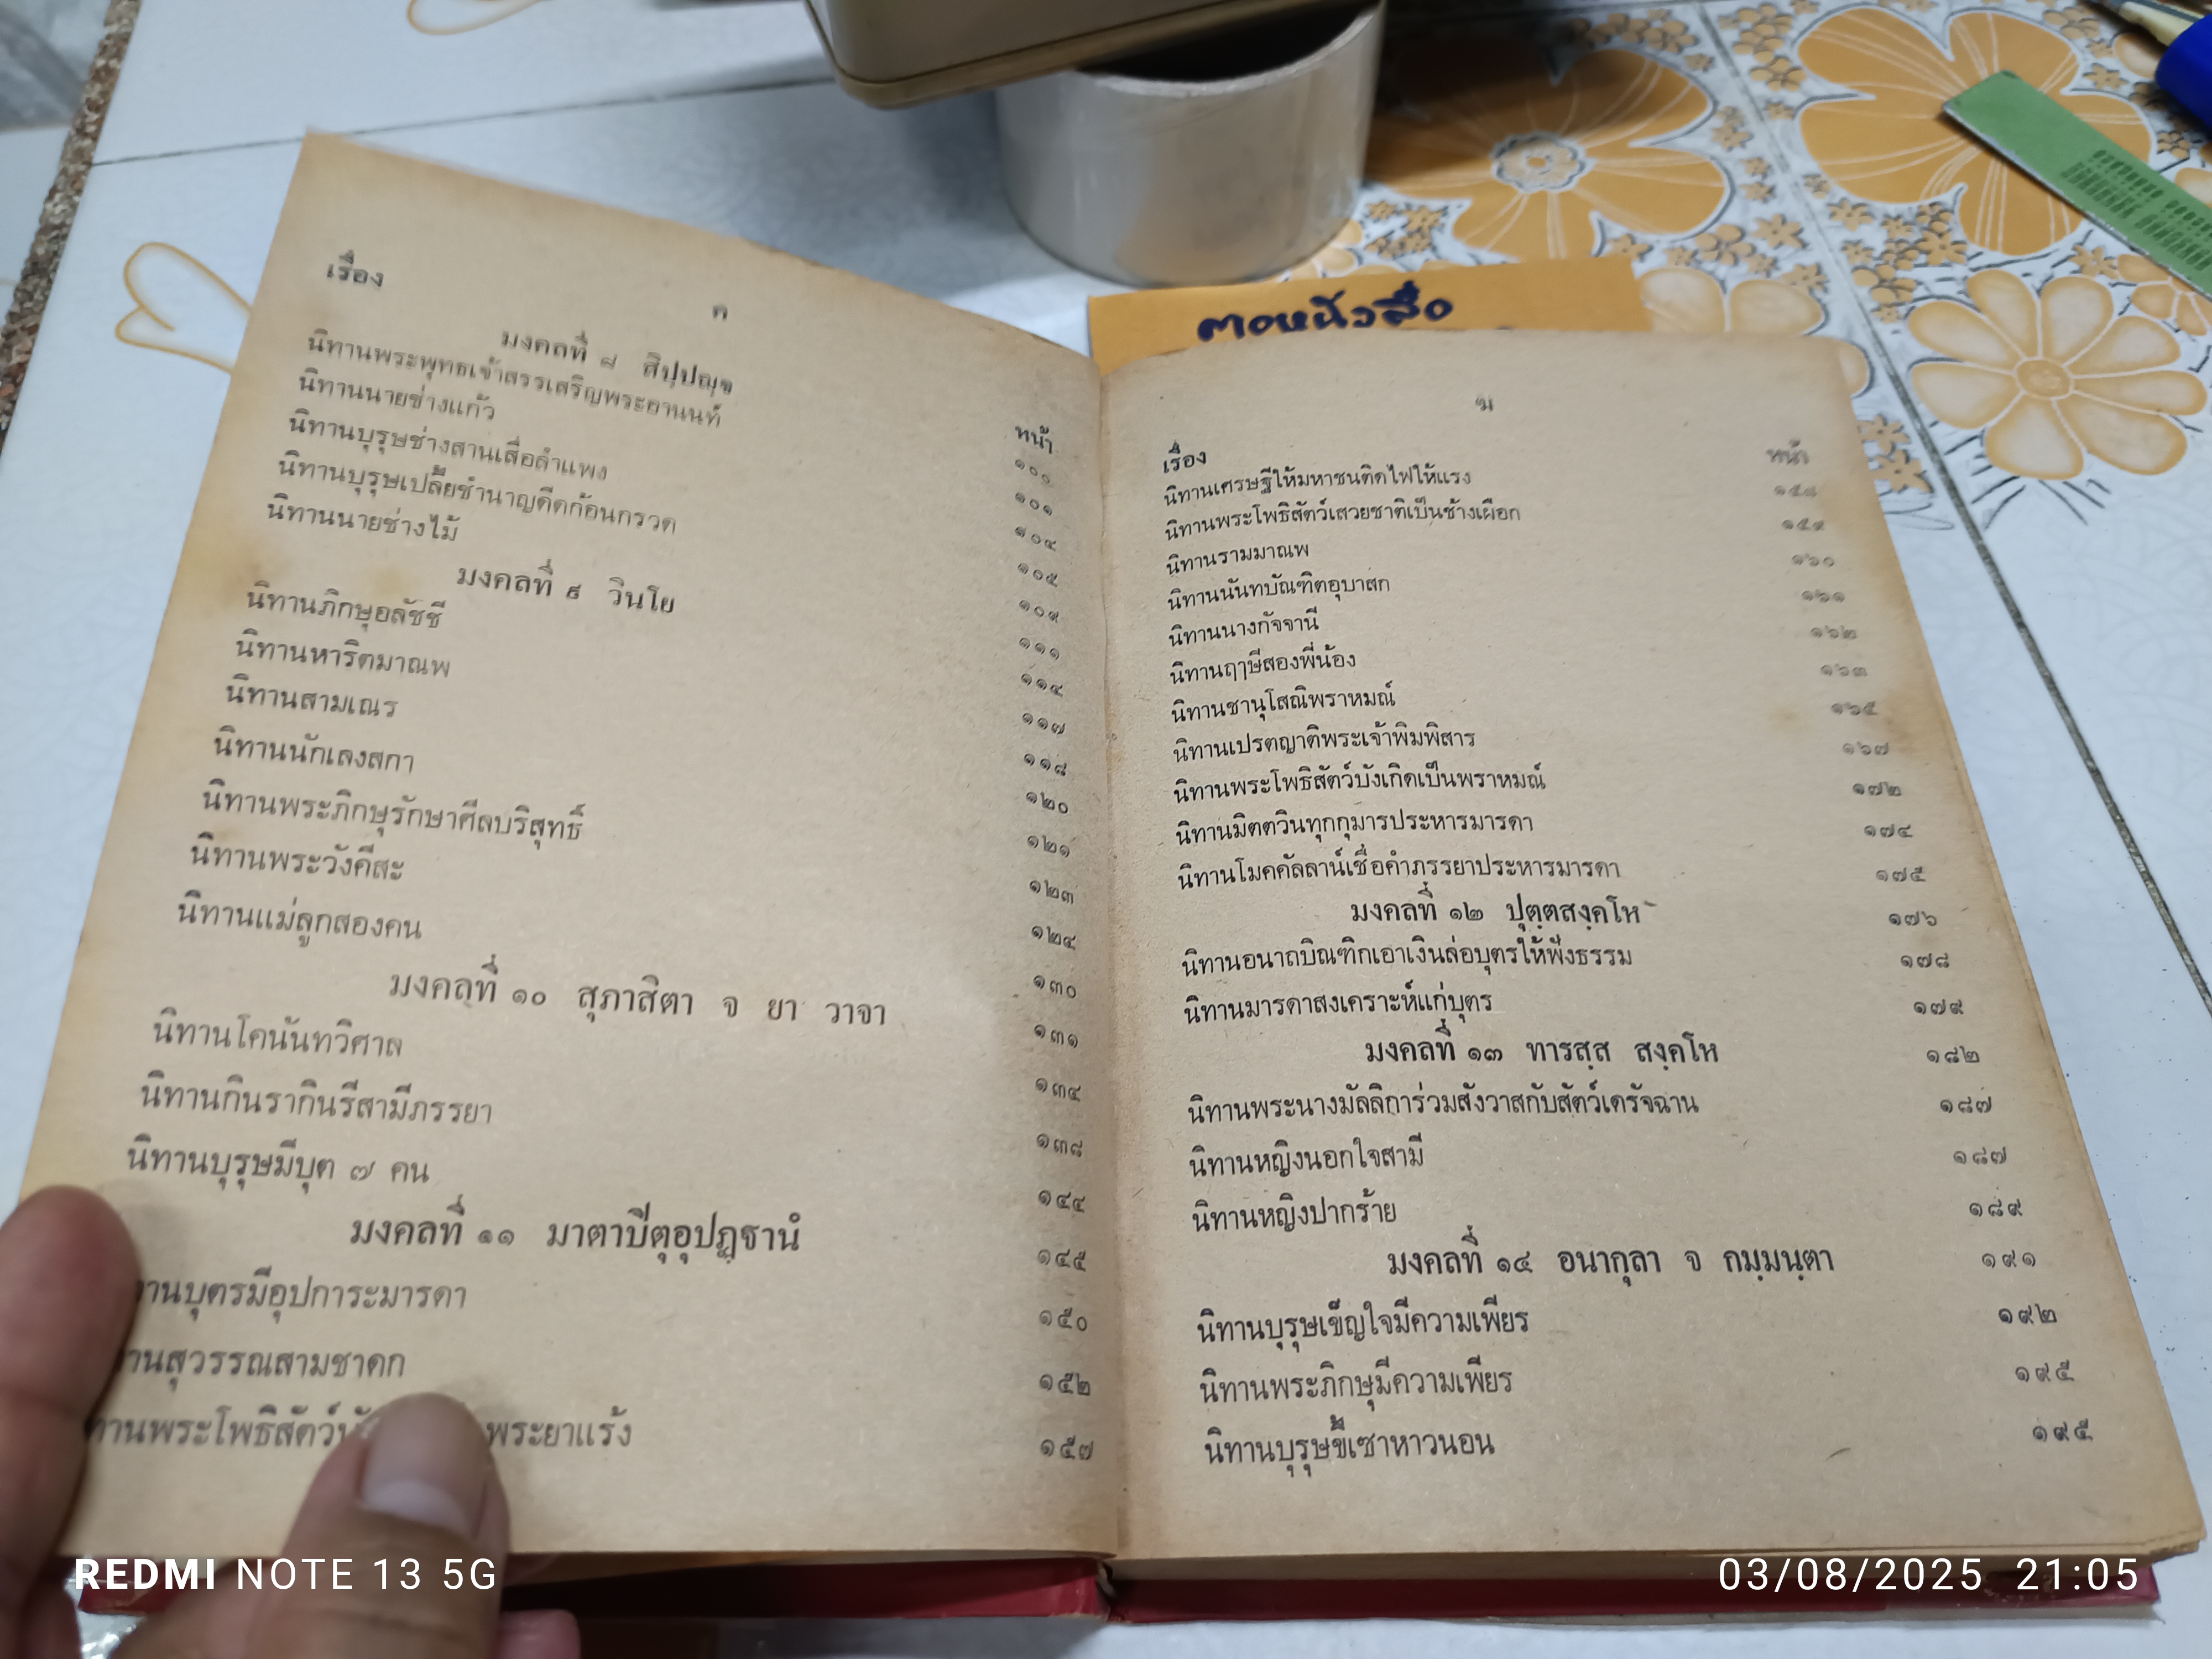 ตอหนังสือ
ค
เรื่อง หน้า
มงคลที่ ๘ สิปฺปญฺจ ๑๐๐
นิทานพระพุทธเจ้าสรรเสริญพระอานนท์ ๑๐๑
นิทานนายช่างแก้ว ๑๐๔
นิทานบุรุษช่างสานเสื่อลำแพง ๑๐๕
นิทานบุรุษเปลี้ยชำนาญดีดก้อนกรวด ๑๐๙
นิทานนายช่างไม้ ๑๑๑
มงคลที่ ๙ วินโย ๑๑๔
นิทานภิกษุอลัชชี ๑๑๗
นิทานหาริตมาณพ ๑๑๘
นิทานสามเณร ๑๒๐
นิทานนักเลงสกา ๑๒๑
นิทานพระภิกษุรักษาศีลบริสุทธิ์ ๑๒๓
นิทานพระวังคีสะ ๑๒๔
นิทานแม่ลูกสองคน ๑๓๐
มงคลที่ ๑๐ สุภาสิตา จ ยา วาจา ๑๓๑
นิทานโคนันทวิศาล ๑๓๔
นิทานกินรากินรีสามีภรรยา ๑๓๘
นิทานบุรุษมีบุต ๗ คน ๑๔๔
มงคลที่ ๑๑ มาตาปีตุอุปฏฺฐานํ ๑๔๕
ทานบุตรมีอุปการะมารดา ๑๕๐
านสุวรรณสามชาดก ๑๕๒
ทานพระโพธิสัตว์ พระยาแร้ง ๑๕๗
ฆ
เรื่อง หน้า
นิทานเศรษฐีให้มหาชนติดไฟให้แรง ๑๕๘
นิทานพระโพธิสัตว์เสวยชาติเป็นช้างเผือก ๑๕๙
นิทานรามมาณพ ๑๖๐
นิทานนันทบัณฑิตอุบาสก ๑๖๑
นิทานนางกัจจานี ๑๖๒
นิทานฤๅษีสองพี่น้อง ๑๖๓
นิทานชานุโสณิพราหมณ์ ๑๖๕
นิทานเปรตญาติพระเจ้าพิมพิสาร ๑๖๗
นิทานพระโพธิสัตว์บังเกิดเป็นพราหมณ์ ๑๗๒
นิทานมิตตวินทุกกุมารประหารมารดา ๑๗๔
นิทานโมคคัลลาน์เชื่อคำภรรยาประหารมารดา ๑๗๕
มงคลที่ ๑๒ ปุตฺตสงฺคโห ๑๗๖
นิทานอนาถบิณฑิกเอาเงินล่อบุตรให้ฟังธรรม ๑๗๘
นิทานมารดาสงเคราะห์แก่บุตร ๑๗๙
มงคลที่ ๑๓ ทารสฺส สงฺคโห ๑๘๒
นิทานพระนางมัลลิการ่วมสังวาสกับสัตว์เดรัจฉาน ๑๘๗
นิทานหญิงนอกใจสามี ๑๘๗
นิทานหญิงปากร้าย ๑๘๙
มงคลที่ ๑๔ อนากุลา จ กมฺมนฺตา ๑๙๑
นิทานบุรุษเข็ญใจมีความเพียร ๑๙๒
นิทานพระภิกษุมีความเพียร ๑๙๕
นิทานบุรุษขี้เซาหาวนอน ๑๙๕
REDMI NOTE 13 5G
03/08/2025 21:05